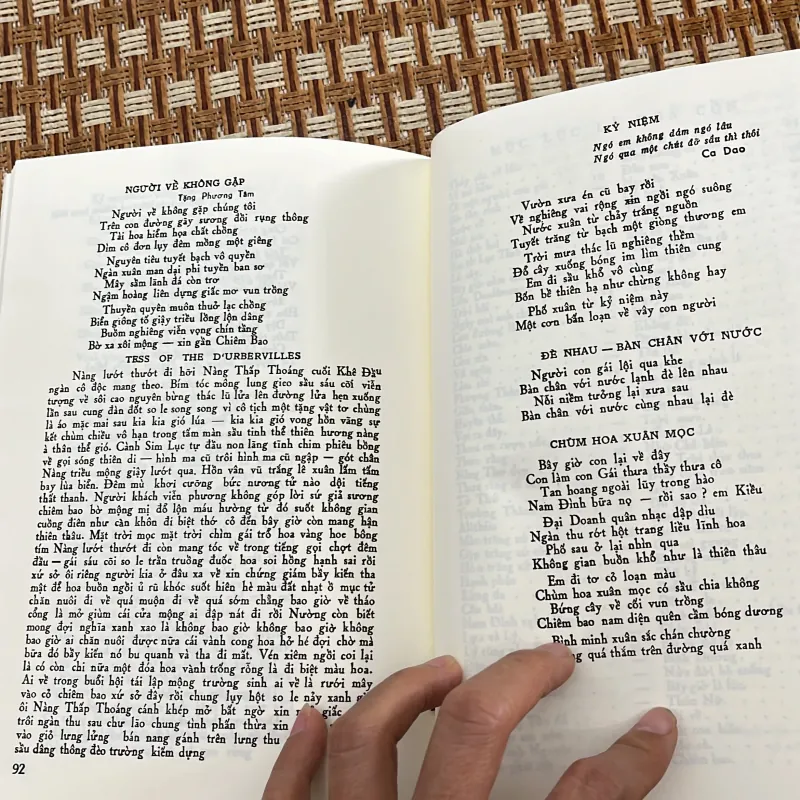 NGƯỜI VỀ KHÔNG GẶP
Tặng Phương Tâm
Người về không gặp chúng tôi
Trên con đường gãy sương đồi rụng thông
Tài hoa hiếm họa chất chồng
Dìm cô đơn lụy đêm mồng một giêng
Nguyên tiêu tuyết bạch vô quyền
Ngàn xuân man dại phi tuyền ban sơ
Mây sầm lãnh đá còn trơ
Ngậm hoàng liên dựng giấc mơ vun trồng
Thuyền quyên muôn thuở lạc chồng
Biển giông tố giậy triều lồng lộn dâng
Buồm nghiêng viễn vọng chín tầng
Bờ xa xôi mộng — xin gần Chiêm Bao
TESS OF THE D'URBERVILLES
Nàng lướt thướt đi hỡi Nàng Thấp Thoáng cuối Khê Đầu
ngàn cô độc mang theo. Bím tóc mông lung gieo sầu sáu cõi viễn
tượng về sôi cao nguyên bừng thác lũ lửa lên đường lửa hẹn xuống
lần sau cung đàn đốt so le song song vì cô tịch một tặng vật tơ chùng
là áo mặc mai sau kia kia gió lúa — kia kia gió vong hồn vãng sự
kết chùm chiều vô hạn trong tấm màn sầu tinh thể thiên hương nàng
à thân thể gió. Cành Sim Lục tự đầu non lăng tĩnh chim phiêu bồng
về gọi sóng thiên di — hình ma cũ trôi hình ma cũ ngập — gót chân
Nàng triều mộng giậy lướt qua. Hồn vân vũ trắng lê xuân lấm tấm
bay lùa biển. Đêm mù khơi cưỡng bức nương tử nào dội tiếng
thất thanh. Người khách viễn phương không góp lời sứ giả sương
chiêm bao bờ mộng mị đổ lộn máu hường từ đó suốt không gian
cuồng điên như càn khôn đi biệt thớ cỏ đến bây giờ còn mang hận
thiên thâu. Mặt trời mọc mặt trời chìm gái trổ hoa vàng hoe bông
tím Nàng lướt thướt đi còn mang tóc về trong tiếng gọi chợt đêm
đầu — gái sáu cõi so le trần truồng đuốc hoa soi hồng hạnh sai rồi
xứ sở ôi riêng người kia ở đâu xa về xin chứng giám bầy kiến tha
mật để hoa buồn ngồi ủ rũ khóc suốt hiên hè màu đất nhạt ồ mục tử
chăn nuôi đi về quá muộn đi về quá sớm chẳng bao giờ về tháo
cổng là mở giùm cái cửa mộng ai dập nát đi rồi Nường còn biết
mong đợi nghĩa xanh xao là không bao giờ không bao giờ không
bao giờ ai chăn nuôi được nữa cái vành cong hoa hở hé đợi chờ mà
bữa đó bầy kiến nó bu quanh và tha đi mất. Vén xiêm ngồi coi lại
là có còn chi nữa một đóa hoa vành trổng rỗng là đi biệt màu hoa.
Ai về trong buổi hội tái lập mộng trường sinh ai về là rưới mây
vào cỏ chiêm bao xứ sở đây rồi chung lụy hột so le nảy xanh
ôi Nàng Thấp Thoáng cánh khép mở bất ngờ xin giấc
trôi ngàn thu sau chư lão chung tình phấn thừa xin
vào gió lưng lửng bán nang gánh trên lưng thu
sầu dâng thông đèo trường kiếm dựng
92
KỶ NIỆM
Ngó em không dám ngó lâu
Ngó qua một chút đỡ sầu thì thôi
Ca Dao
Vườn xưa én cũ bay rồi
Về nghiêng vai rộng xin ngồi ngó suông
Nước xuân từ chảy trắng nguồn
Tuyết trăng từ bạch một giòng thương em
Trời mưa thác lũ nghiêng thềm
Đổ cây xuống bóng im lìm thiên cung
Em đi sầu khổ vô cùng
Bốn bề thiên hạ như chừng không hay
Phố xuân từ kỷ niệm này
Một cơn bấn loạn về vây con người
ĐÈ NHAU — BÀN CHÂN VỚI NƯỚC
Người con gái lội qua khe
Bàn chân với nước lạnh đè lên nhau
Nỗi niềm tưởng lại xưa sau
Bàn chân với nước cùng nhau lại đè
CHÙM HOA XUÂN MỌC
Bây giờ con lại về đây
Con làm con Gái thưa thầy thưa cô
Tan hoang ngoài lũy trong hào
Nam Đình bữa nọ — rồi sao ? em Kiều
Đại Doanh quân nhạc dập dìu
Ngàn thu rớt hột trang liều linh hoa
Phố sau ở lại nhìn qua
Không gian buồn khổ như là thiên thâu
Em đi tơ cỏ loạn màu
Chùm hoa xuân mọc có sầu chia không
Bứng cây về cõi vun trồng
Chiêm bao nam diện quên cầm bóng dương
Bình minh xuân sắc chán chường
quá thắm trên đường quá xanh